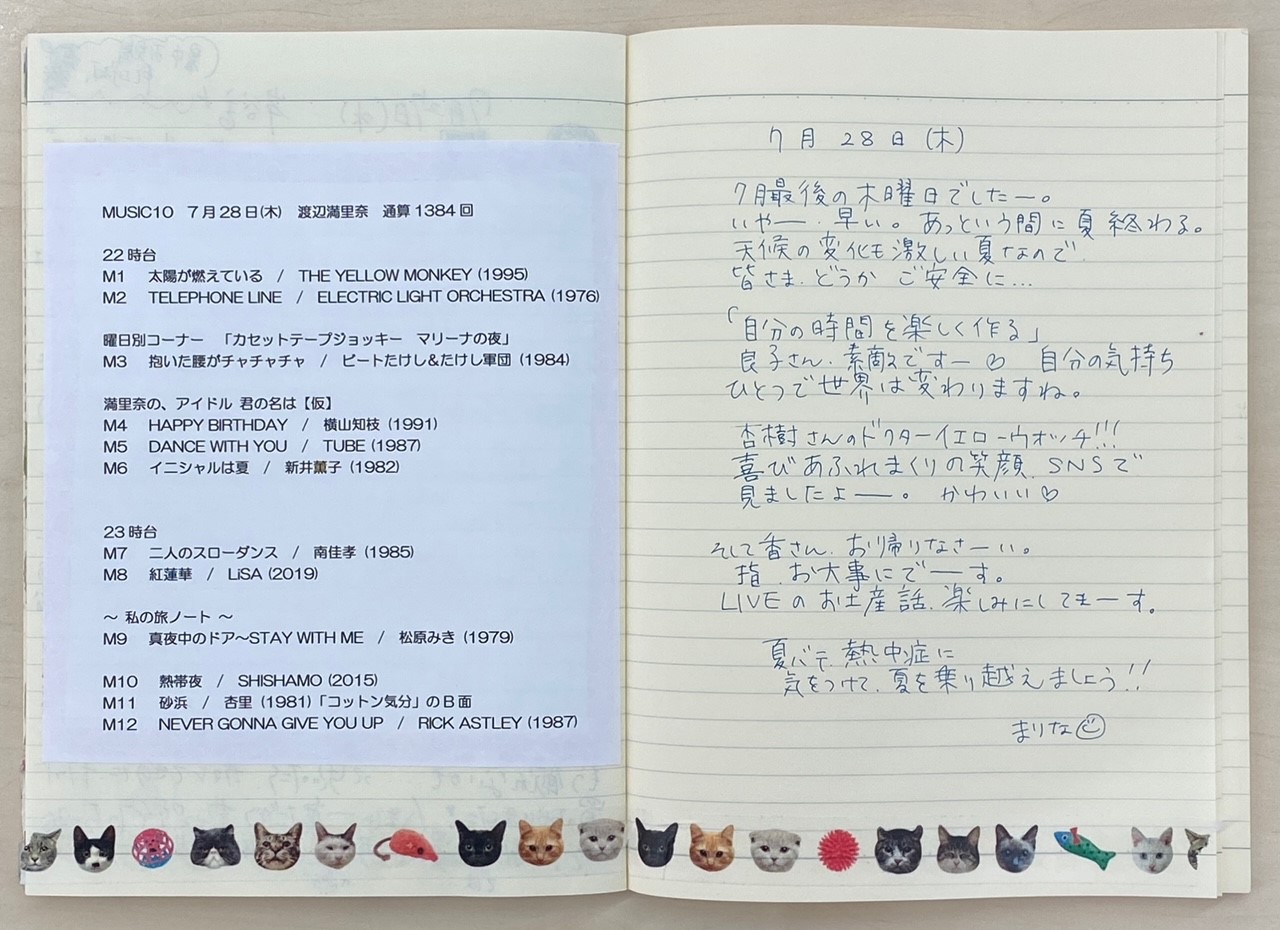 MUSIC10　7月28日(木)　渡辺満里奈　通算1384回
22時台
M1　太陽が燃えている　/　THE YELLOW MONKEY (1995)
M2　TELEPHONE LINE　/　ELECTRIC LIGHT ORCHESTRA (1976)
曜日別コーナー　「カセットテープジョッキー　マリーナの夜」
M3　抱いた腰がチャチャチャ　/　ビートたけし&たけし軍団 (1984)
満里奈の、アイドル 君の名は【仮】
M4　HAPPY BIRTHDAY　/　横山知枝 (1991)
M5　DANCE WITH YOU　/　TUBE (1987)
M6　イニシャルは夏　/　新井薫子 (1982)
23時台
M7　二人のスローダンス　/　南佳孝 (1985)
M8　紅蓮華　/　LiSA (2019)
～ 私の旅ノート ～
M9　真夜中のドア～STAY WITH ME　/　松原みき (1979)
M10　熱帯夜　/　SHISHAMO (2015)
M11　砂浜　/　杏里 (1981)「コットン気分」のB面
M12　NEVER GONNA GIVE YOU UP　/　RICK ASTLEY (1987)
7月28日(木)
7月最後の木曜日でしたー。
いやー、早い。あっという間に夏終わる。
天候の変化も激しい夏なので、
皆さま、どうか ご安全に…
「自分の時間を楽しく作る」
良子さん、素敵ですー♡　自分の気持ち
ひとつで世界は変わりますね。
杏樹さんのドクターイエローウォッチ!!!
喜びあふれまくりの笑顔、SNSで
見ましたよー。かわいい♡
そして香さん、お帰りなさーい。
指、お大事にでーす。
LIVEのお土産話、楽しみにしてまーす。
夏バテ、熱中症に
気をつけて、夏を乗り越えましょう!!
まりな☺